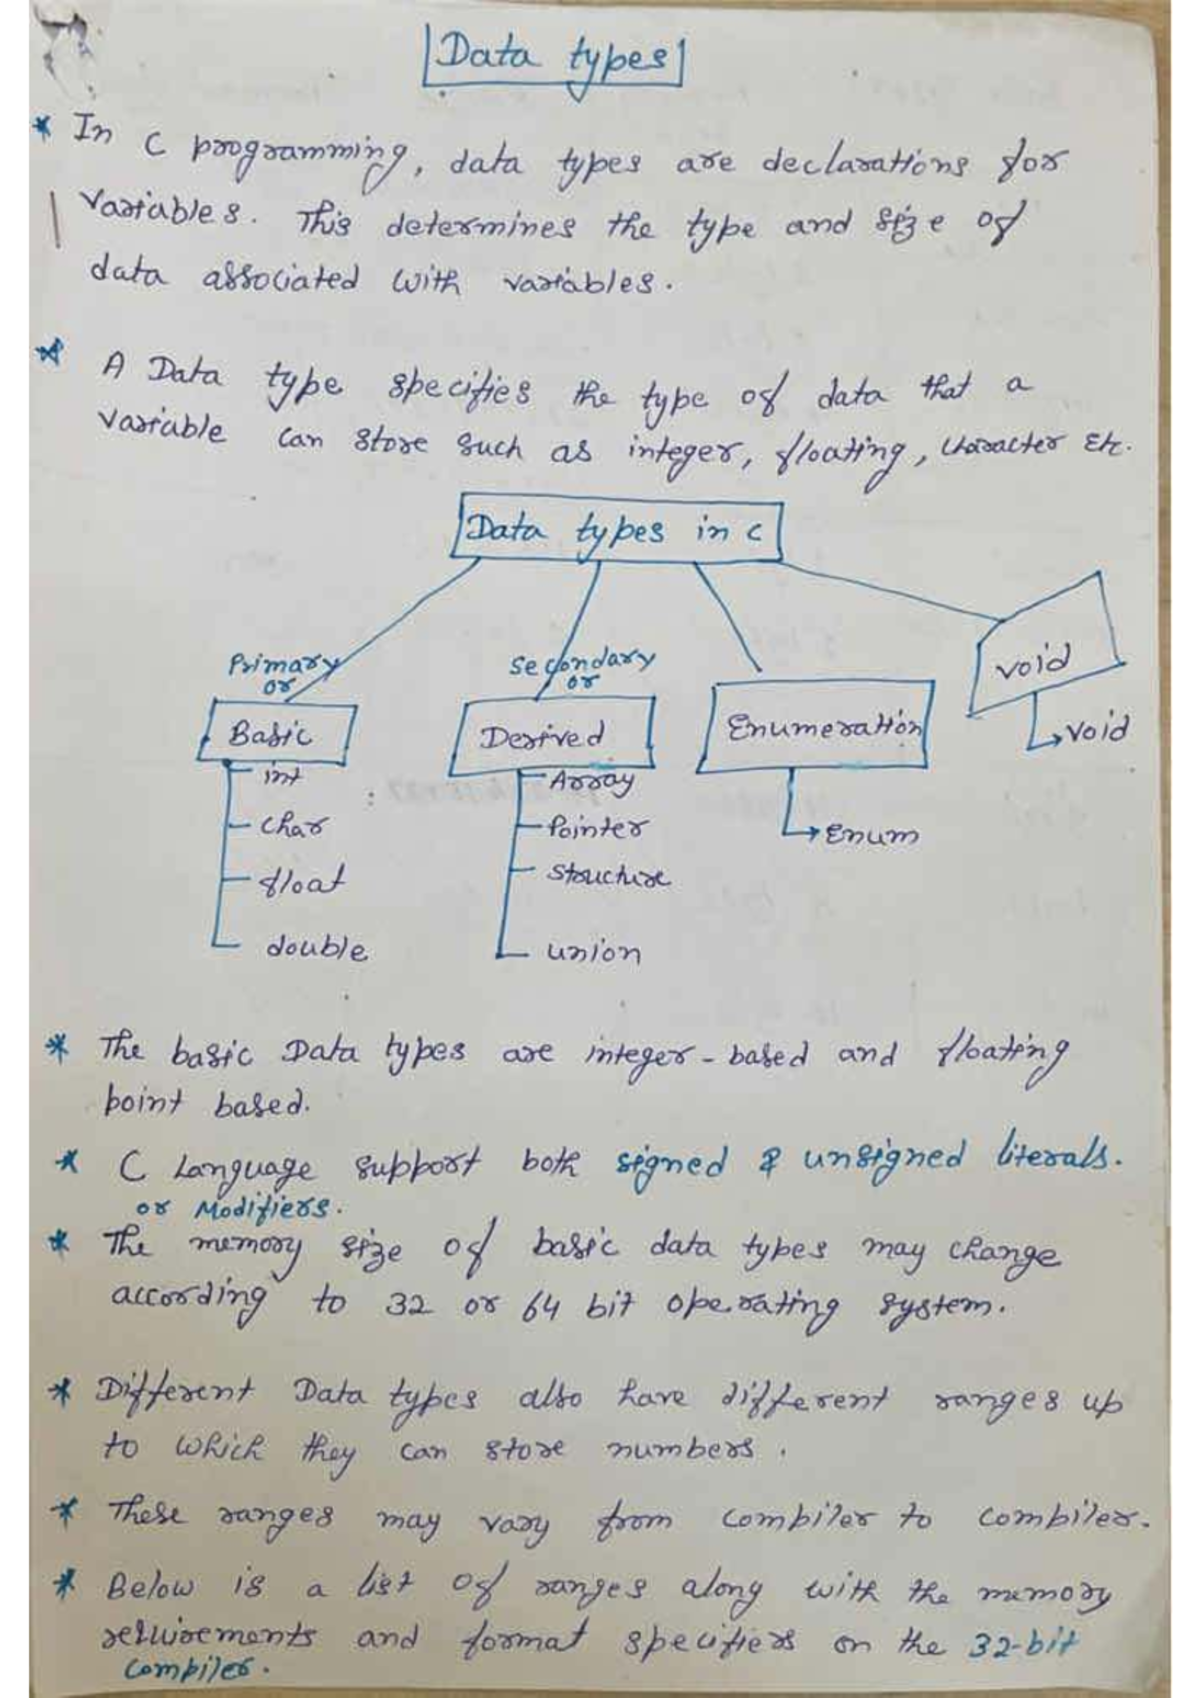 Data types
* In C programming, data types are declarations for
variables. This determines the type and size of
data associated with variables.
* A Data type specifies the type of data that a
variable can store such as integer, floating, character Etc.
Data types in C
Primary
or
Basic
int
char
float
double
Secondary
or
Derived
Array
Pointer
Structure
union
Enumeration
Enum
void
void
* The basic Data types are integer-based and floating
point based.
* C Language support both signed & unsigned literals.
or Modifiers.
* The memory size of basic data types may change
according to 32 or 64 bit operating system.
* Different Data types also have different ranges up
to which they can store numbers.
* These ranges may vary from compiler to compiler.
* Below is a list of ranges along with the memory
requirements and format specifiers on the 32-bit
compiler.